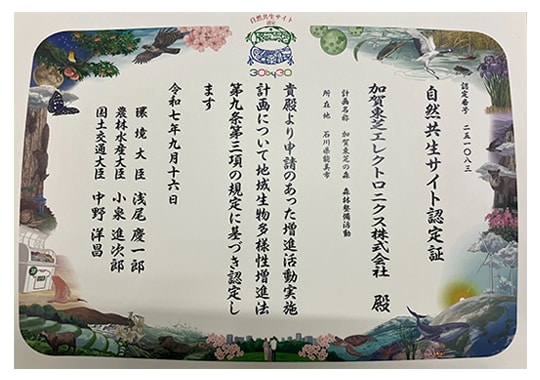 自然共生サイト
認定
30by30
認定番号 二五一〇八三
自然共生サイト認定証
加賀東芝エレクトロニクス株式会社 殿
計画名称 加賀東芝の森 森林整備活動
所在地 石川県能美市
貴殿より申請のあった増進活動実施
計画について地域生物多様性増進法
第九条第三項の規定に基づき認定し
ます
令和七年九月十六日
環境大臣 浅尾慶一郎
農林水産大臣 小泉進次郎
国土交通大臣 中野洋昌